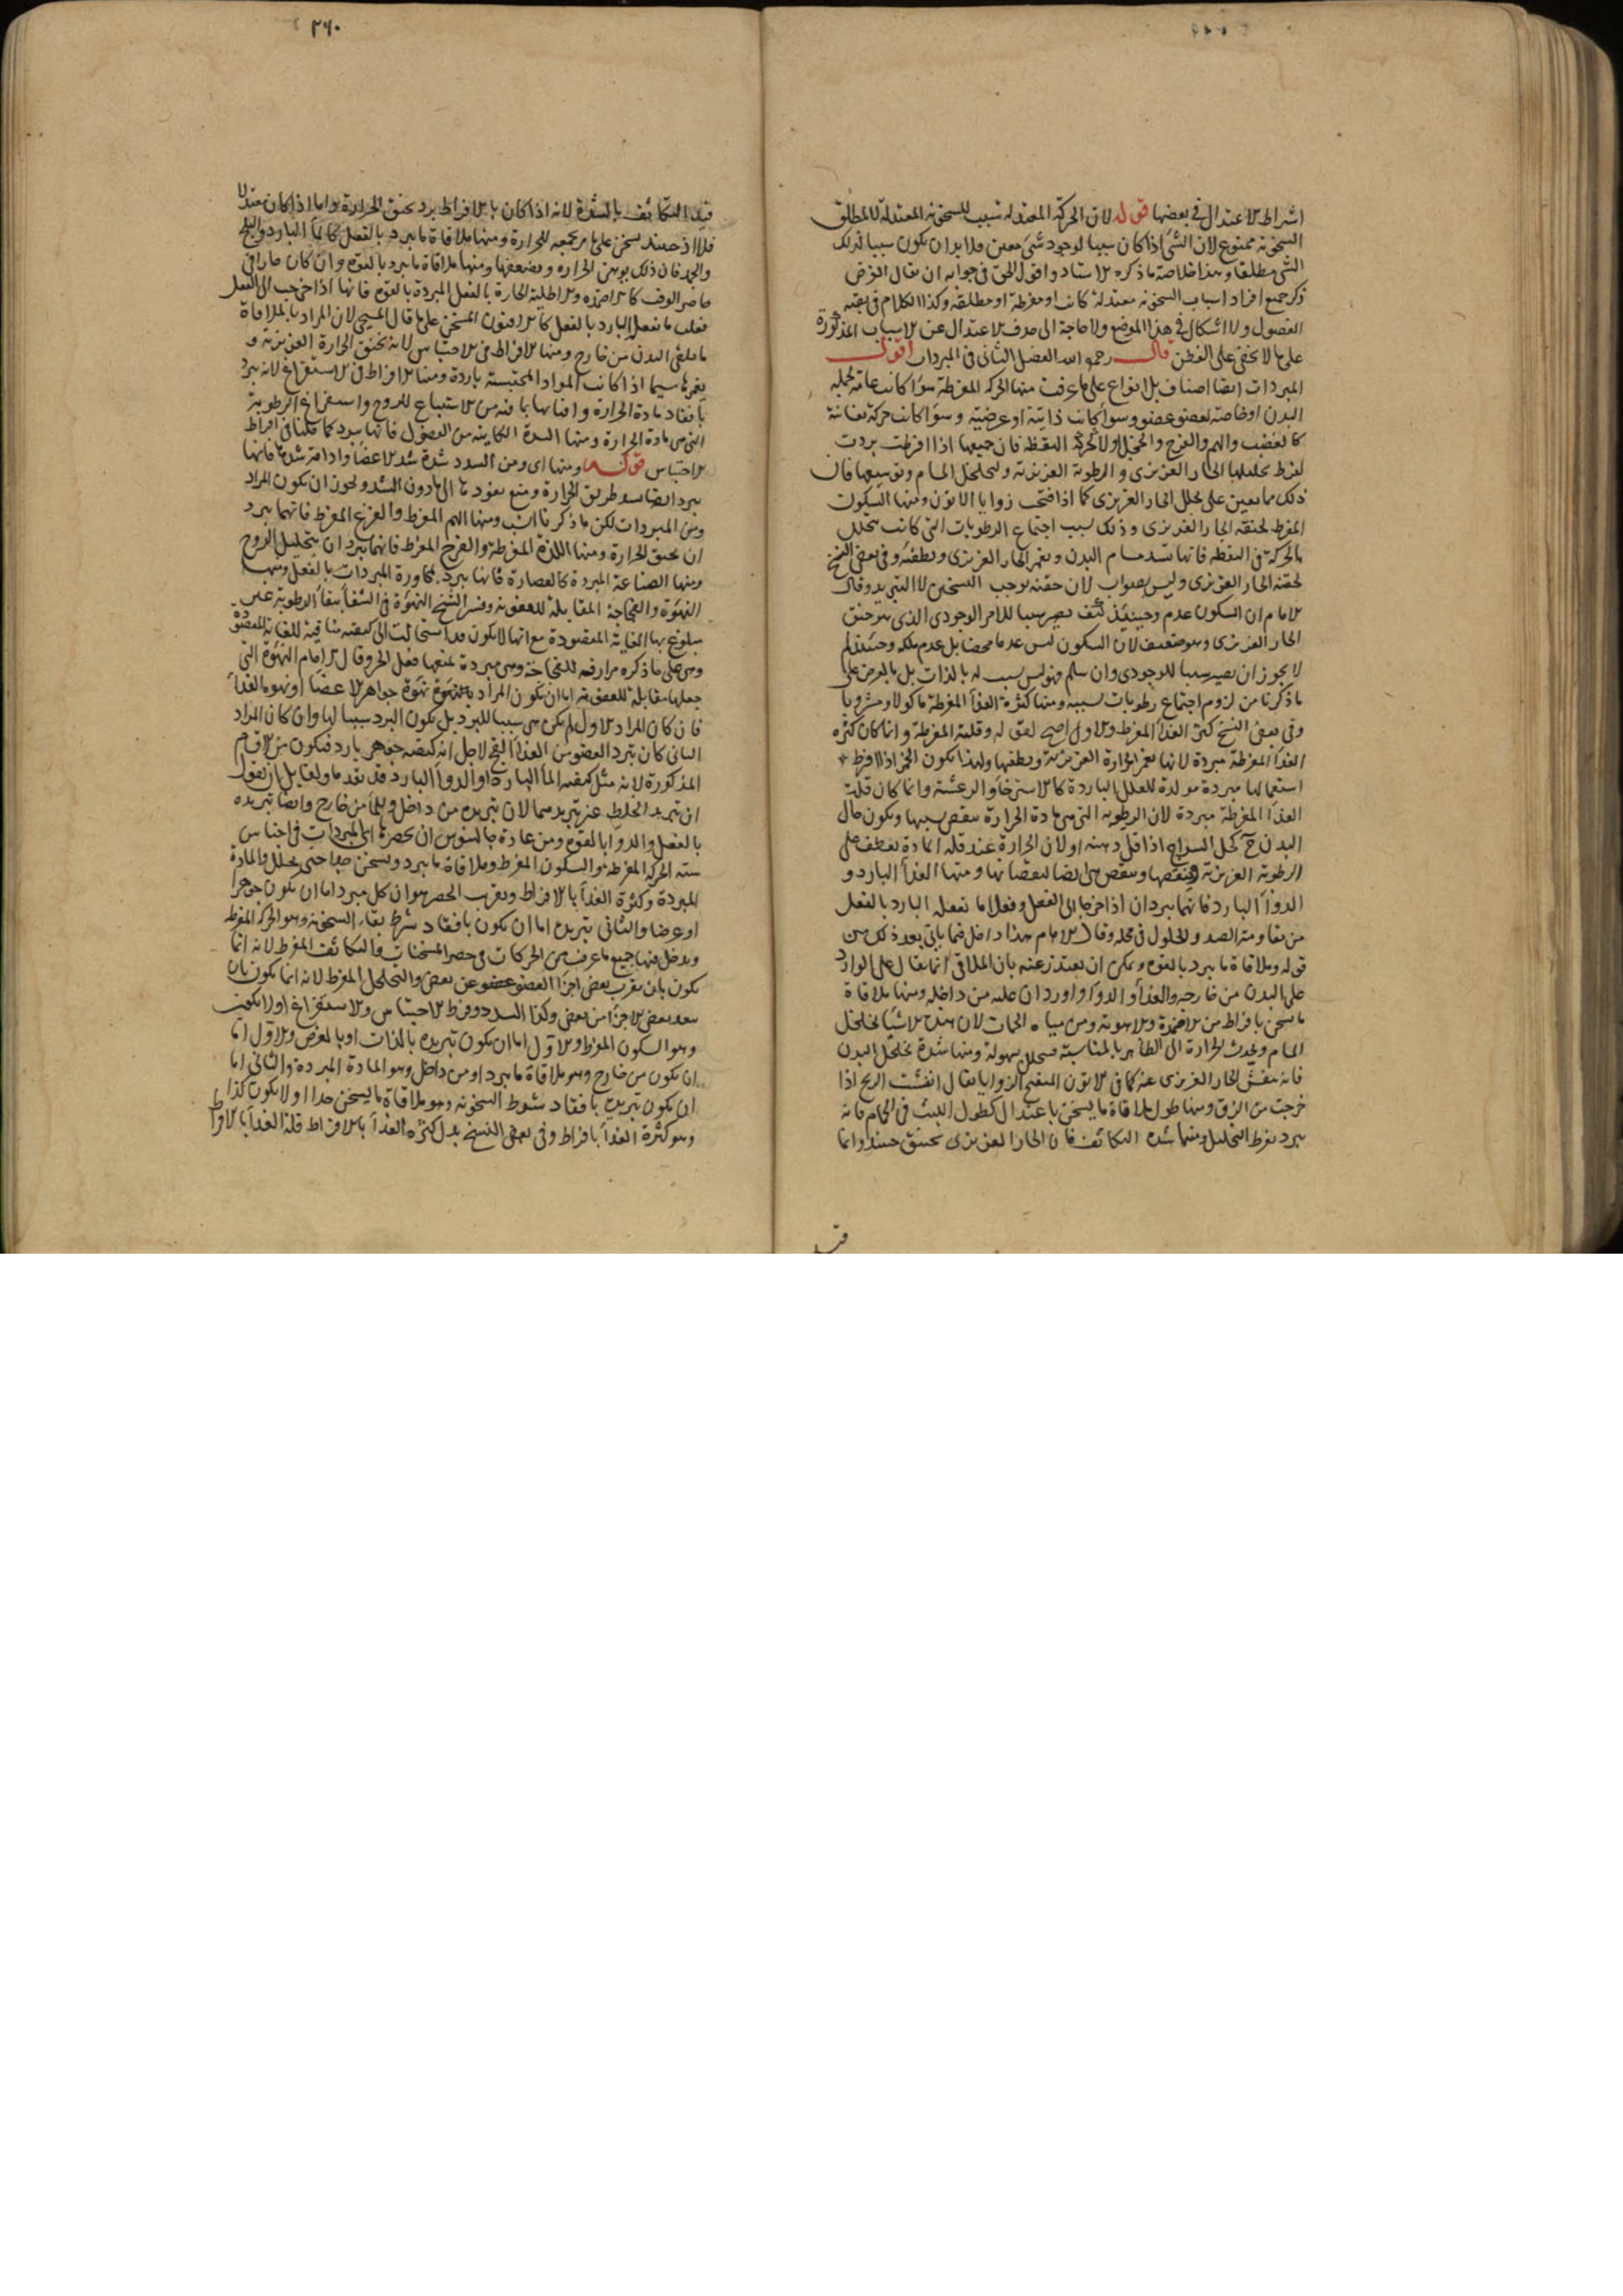 اشراط الاعتدال فى بعضها قوله لان الحركة المعتدلة سبب للسخونة المعتدلة لا لمطلق
السخونة ممنوع لان الشئ اذا كان سببا لوجود شئ معين فلا بد ان يكون سببا لذلك
الشئ مطلقا وهذا خلاصة ما ذكره الاستاد واقول الحق فى جوابه ان يقال الغرض
ذكر جميع افراد اسباب السخونة معتدلة كانت او مفرطة او مطلقة وكذا الكلام فى بقية
الفصول ولا اشكال فى هذا الموضع ولا حاجة الى صرف الاعتدال عن الاسباب المذكورة
على ما لا يخفى على الفطن قال رحمه الله الفصل الثانى فى المبردات اقول
المبردات ايضا اصناف بل انواع على ما عرفت منها الحركة المفرطة سواء كانت عامة لجملة
البدن او خاصة لعضو عضو وسواء كانت ذاتية او عرضية وسواء كانت حركة نفسانية
كالغضب والهم والفرح والخجل او لا كحركة اليقظة فان جميعها اذا افرطت بردت
لفرط تحليلها الحار الغريزى والرطوبة الغريزية ولتخلخل المسام وتوسيعها فان
ذلك مما يعين على تحلل الحار الغريزى كما اذا فتحت زوايا الاتون ومنها السكون
المفرط لخنقه الحار الغريزى وذلك بسبب اجتماع الرطوبات التى كانت تتحلل
بالحركة فى اليقظة فانها تسد مسام البدن وتغمر الحار الغريزى وتطفئه وفى بعض النسخ
لحقنه الحار الغريزى وليس بصواب لان حقنه يوجب التسخين لا التبريد وقال
الامام ان السكون عدم وحينئذ كيف يصير سببا للامر الوجودى الذى هو خنق
الحار الغريزى وهو ضعيف لان السكون ليس عدما محضا بل عدم ملكة وحينئذ لم
لا يجوز ان يصير سببا للوجودى وان سلم فهو ليس سبب له بالذات بل بالعرض على
ما ذكرنا من لزوم اجتماع رطوبات بسببه ومنها كثرة الغذاء المفرطة ماكولا ومشروبا
وفى بعض النسخ كثرة الغذاء المفرط والاول اصح لقوله وقلته المفرطة وانما كان كثرة
الغذاء المفرطة مبردة لانها تغمر الحرارة الغريزية وتطفيها ولهذا يكون الخمر اذا افرط
استعمالها مبردة مولدة للعلل الباردة كالاسترخاء والرعشة وانما كان قلة
الغذاء المفرطة مبردة لان الرطوبة التى هى مادة الحرارة تنقص بسببها ويكون حال
البدن ح كحال السراج اذا قل دهنه او لان الحرارة عند قلة المادة تعطف على
الرطوبة الغريزية وتنقصها وتنقص هى ايضا لنقصانها ومنها الغذاء البارد و
الدواء البارد فانهما يبردان اذا خرجا الى الفعل وفعلا ما يفعله البارد بالفعل
من مقاومة الضد والحلول فى محله وقال الامام هذا داخل فيما ياتى بعد ذلك من
قوله وملاقاة ما يبرد بالقوة ويمكن ان يعتذر عنه بان الملاقى انما يقال على الوارد
على البدن من خارجه والغذاء والدواء واردان عليه من داخله ومنها ملاقاة
ما يسخن بافراط من الاضمدة والاهوية ومن مياه الحمات لان هذه الاشياء تخلخل
المسام وتجذب الحرارة الى الظاهر بالمناسبة فتتحلل بسهولة ومنها شدة تخلخل البدن
فانه ينفش الحار الغريزى عنه كما فى الاتون المنفتح الزوايا يقال انفشت الريح اذا
خرجت من الزق ومنها طول ملاقاة ما يسخن باعتدال كطول اللبث فى الحمام فانه
يبرد بفرط التحليل ومنها شدة التكاثف فان الحار الغريزى يختنق حينئذ وانما
قيد
٢٦٠
قيد التكاثف بالشدة لانه اذا كان بالافراط يرد بخنق الحرارة واما اذا كان معتدلا
فلا اذ حينئذ يسخن على ما مر بجمعه للحرارة ومنها ملاقاة ما يبرد بالفعل كالماء البارد والثلج
والجمد فان ذلك يوهن الحرارة ويضعفها ومنها ملاقاة ما يبرد بالقوة وان كان حارا فى
حاضر الوقت كالاضمدة والاطلية الحارة بالفعل المبردة بالقوة فانها اذا خرجت الى الفعل
فعلت ما يفعل البارد بالفعل كالافيون المسخن على ما قال المسيحى لان المراد بالملاقاة
ما يلقى البدن من خارج ومنها الافراط فى الاحتباس لانه يخنق الحرارة الغريزية و
يغمرها سيما اذا كانت المواد المحتبسة باردة ومنها الافراط فى الاستفراغ لانه يبرد
بافقاد مادة الحرارة وافنائها بما فيه من الاستتباع للروح واستفراغ الرطوبة
التى هى مادة الحرارة ومنها السدة الكاينة من الفضول فانها تبرد كما قلنا فى افراط
الاحتباس قوله ومنها اى ومن السدد شدة شد الاعضاء وادامة شدها فانها
تبرد ايضا بسد طريق الحرارة ومنع نفوذها الى ما دون الشد ويجوز ان يكون المراد
ومن المبردات لكن ما ذكرنا انسب ومنها الهم المفرط والفزع المفرط فانهما يبرد
ان بخنق الحرارة ومنها اللذة المفرطة والفرح المفرط فانهما يبردان بتحليل الروح
ومنها الصناعة المبردة كالقصارة فانها تبرد بمجاورة المبردات بالفعل ومنها
النهوة والفجاجة المقابلة للعفونة وفسر الشيخ النهوة فى الشفا ببقاء الرطوبة غير
مبلوغ بها الغاية المقصودة مع انها لا يكون قد استحالت الى كيفية منافية للغاية المقصودة
وهى على ما ذكره مرادفة للفجاجة وهى مبردة لمنعها فعل الحر وقال الامام النهوة التى
جعلها مقابلة للعفونة اما ان يكون المراد بالنهوة نهوة جواهر الاعضاء او نهوة الغذاء
فان كان المراد الاول لم يكن هى سببا للبرد بل يكون البرد سببا لها وان كان المراد
الثانى كان تبرد العضو من الغذاء الفج لاجل انه كيفية جوهر بارد فيكون من الاقسام
المذكورة لانه مثل كيفية الماء البارد او الدواء البارد قد تقدما ولقايل ان يقول
ان تبريد الخلط غير تبريدهما لان تبريده من داخل والماء من خارج وايضا تبريده
بالفعل والدواء بالقوة ومن عادة جالينوس ان يحصر اى المبردات فى اجناس
ستة الحركة المفرطة والسكون المفرط وملاقاة ما يبرد ويسخن جدا حتى يحلل والمادة
المبردة وكثرة الغذاء بالافراط وتقريب الحصر هو ان كل مبرد اما ان يكون جوهرا
او عرضا والثانى تبريده اما ان يكون بافقاد شرط بقاء السخونة وهو الحركة المفرطة
ويدخل فيها جميع ما عرف من الحركات فى حصر المسخنات والتكاثف المفرط لانه انما
يكون بان يقرب بعض اجزاء العضو عن بعض والتخلخل المفرط لانه انما يكون بان
يبعد بعض الاجزاء من بعض وكذا السدد وفرط الاحتباس والاستفراغ او لا يكون
وهو السكون المفرط والاول اما ان يكون تبريده بالذات او بالعرض والاول اما
ان يكون من خارج وهو ملاقاة ما يبرد او من داخل وهو المادة المبردة والثانى اما
ان يكون تبريده بافقاد شرط السخونة وهو ملاقاة ما يسخن جدا او لا يكون كذا
وهو كثرة الغذاء بافراط وفى بعض النسخ بدل كثرة الغذاء بالافراط قلة الغذاء بالافراط